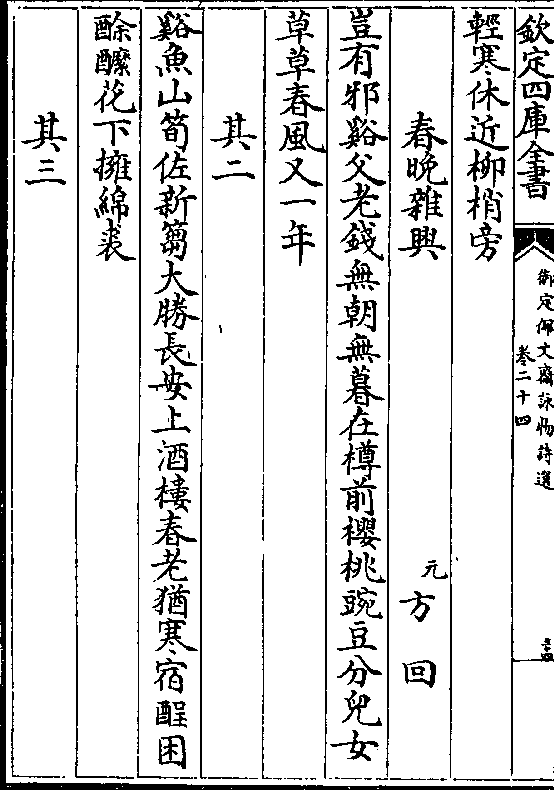 欽定四庫全書
御定佩文齋詠物詩選
卷二十四
輕寒休近柳梢旁
春晚雜興
元方回
豈有邪谿父老錢無朝無暮在樽前櫻桃豌豆分兒女
草草春風又一年
其二
谿魚山筍佐新篘大勝長安上酒樓春老猶寒宿酲困
酴醿花下擁綿裘
其三